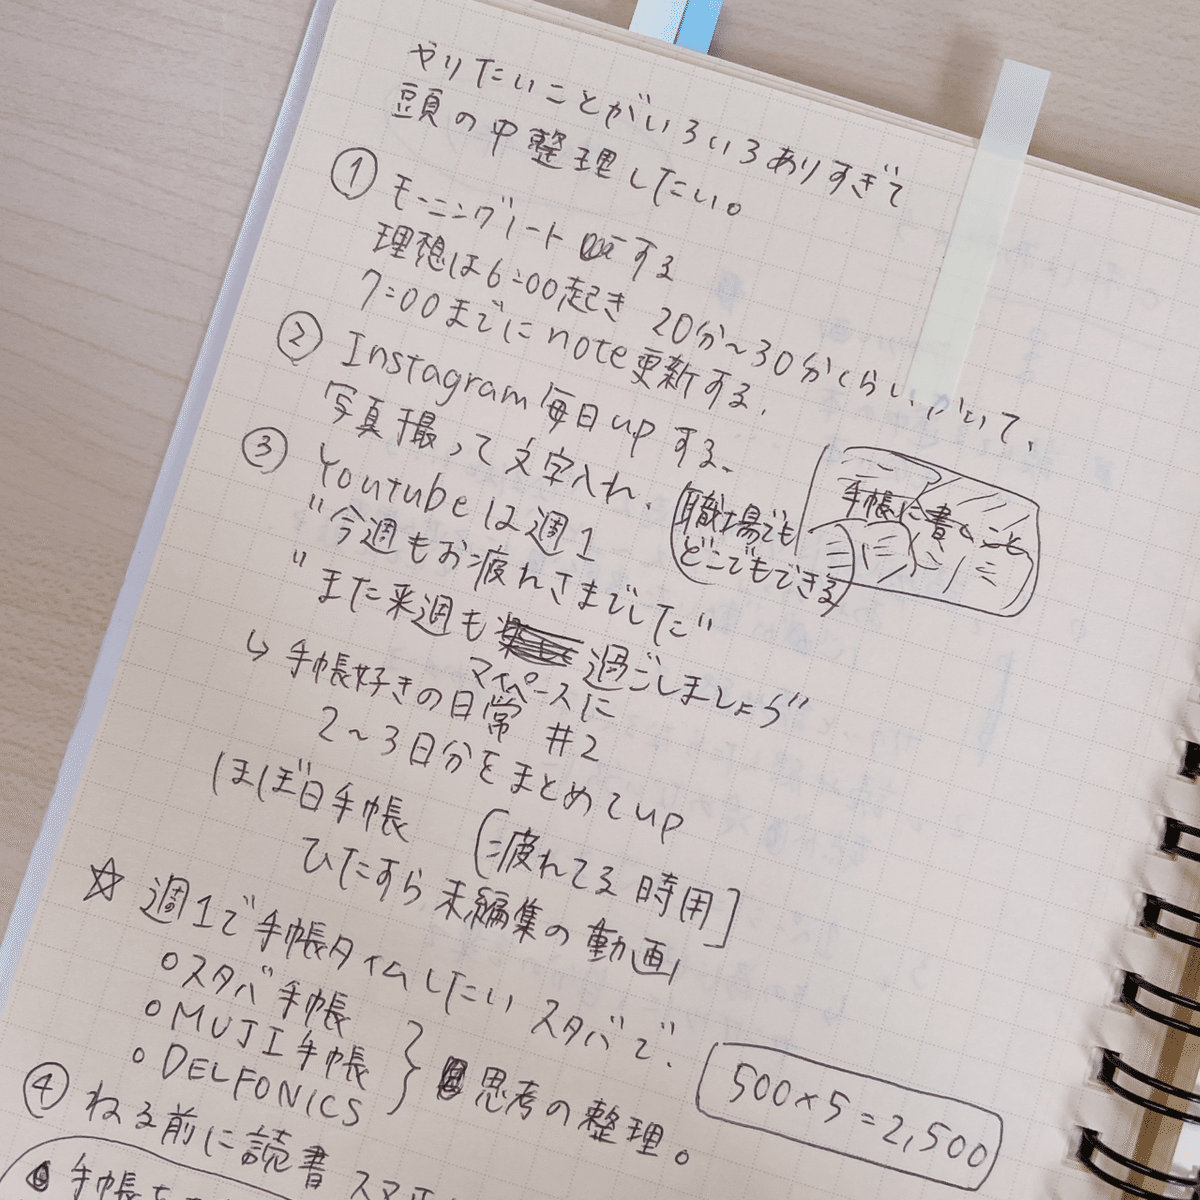 やりたいことがいろいろありすぎて
頭の中整理したい。
① モーニングノート する
理想は6:00起き 20分〜30分くらいかいて、
7:00までにnote更新する.
② Instagram 毎日up する、
写真撮って文字入れ.
(職場でも
どこでもできる)
手帳に書くこと
③ Youtubeは週1
"今週もお疲れさまでした"
"また来週も 過ごしましょう"
マイペースに
↳ 手帳好きの日常 #2
2〜3日分をまとめてup
ほぼ日手帳
(=疲れてる時用]
ひたすら未編集の動画
☆ 週1で手帳タイムしたい スタバで.
○スタバ手帳
○MUJI手帳
○DELFONICS
} 思考の整理。
500×5=2,500
④ ねる前に読書
手帳を